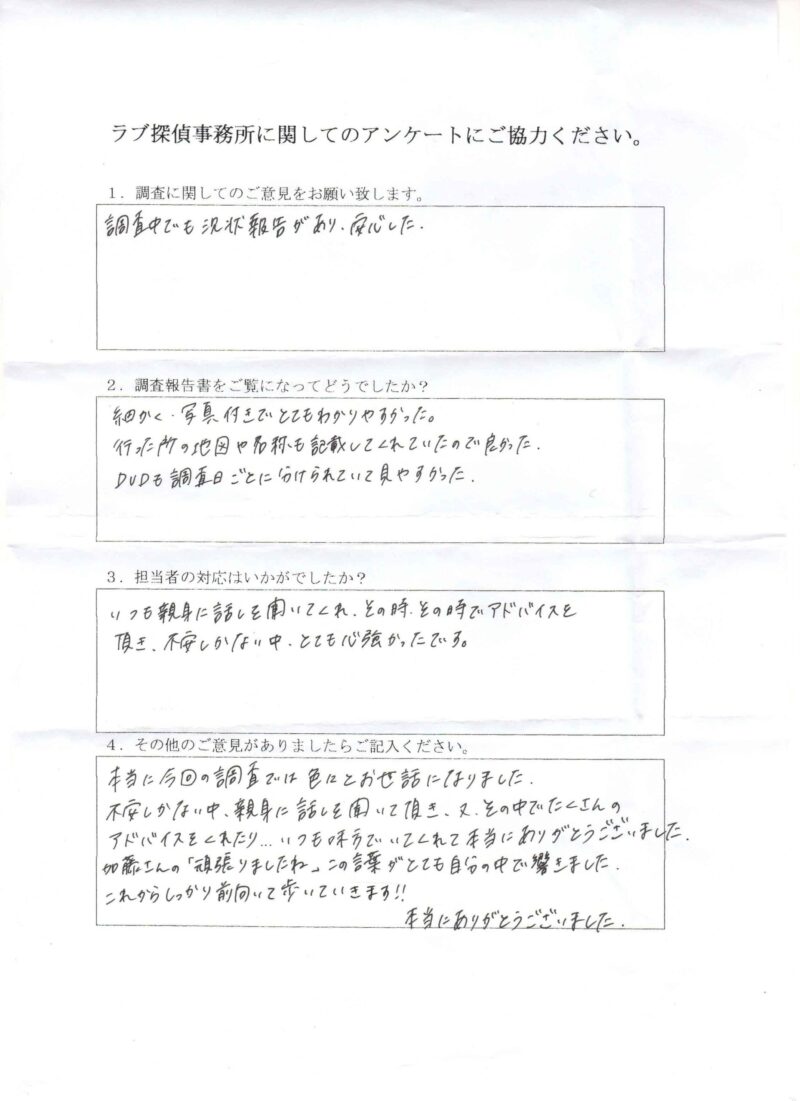 ラブ探偵事務所に関してのアンケートにご協力ください。
１．調査に関してのご意見をお願い致します。
調査中でも況状報告があり、安心した.
２．調査報告書をご覧になってどうでしたか？
細かく、写真付きでとてもわかりやすかった。
行った所の地図や名称も記載してくれていたので良かった.
DVDも調査日ごとに分けられていて見やすかった.
３．担当者の対応はいかがでしたか？
いつも親身に話しを聞いてくれ、その時、その時でアドバイスを
頂き、不安しかない中、とても心強かったです。
４．その他のご意見がありましたらご記入ください。
本当に今回の調査では色々とお世話になりました.
不安しかない中、親身に話しを聞いて頂き、又、その中でたくさんの
アドバイスをくれたり...いつも味方でいてくれて本当にありがとうございました.
加藤さんの「頑張りましたね」この言葉がとても自分の中で響きました.
これからしっかり前向いて歩いていきます!!
本当にありがとうございました.